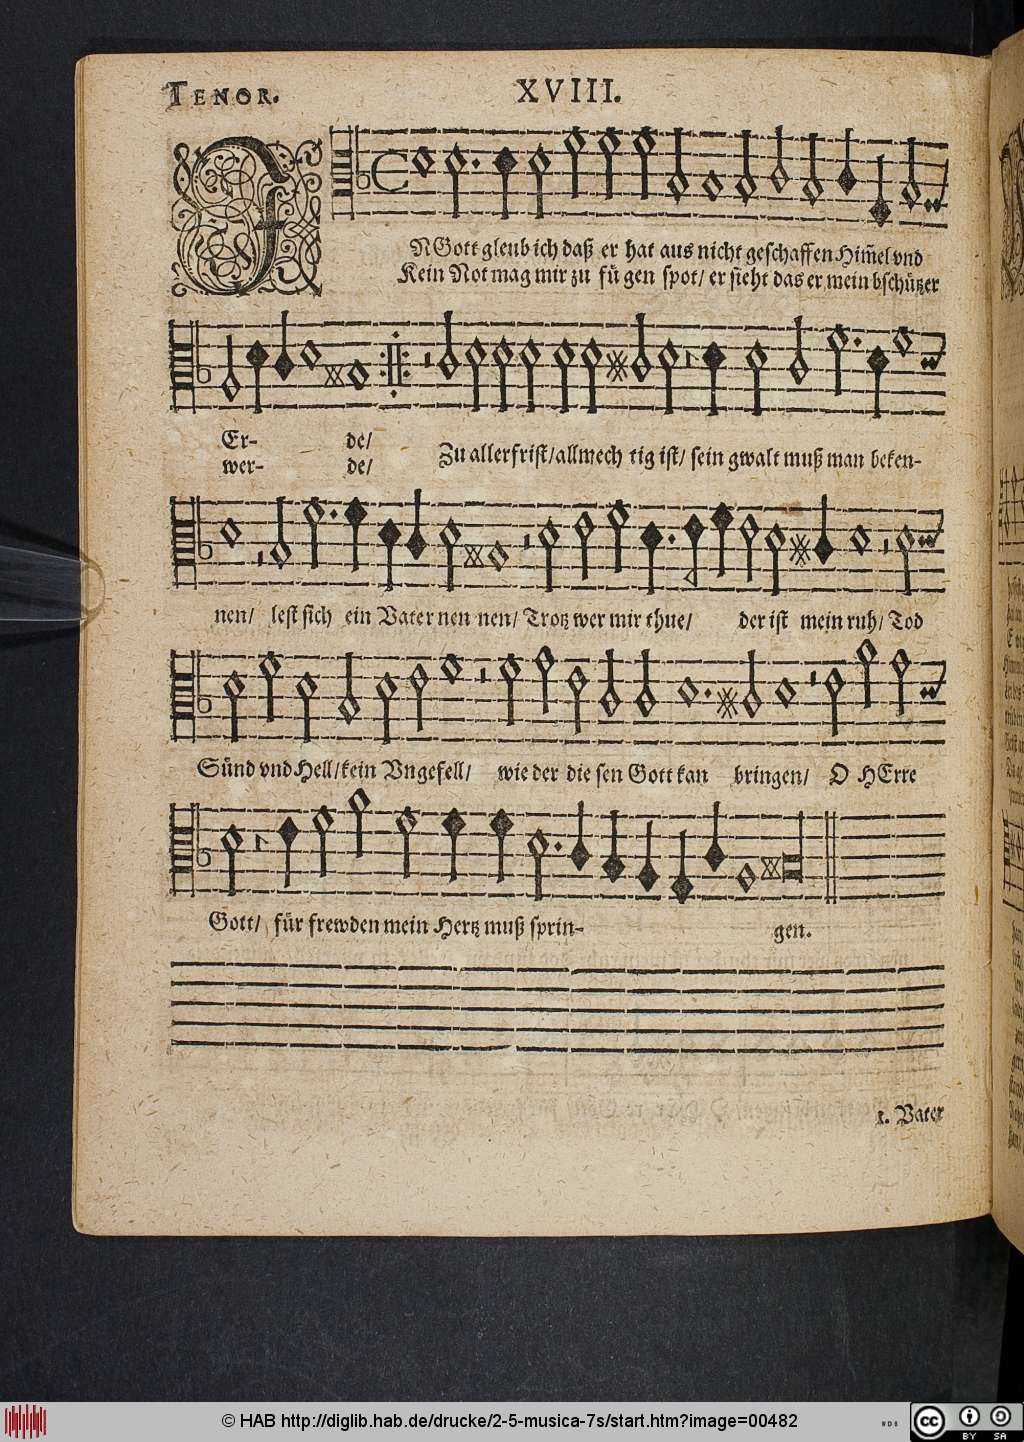 TENOR.
XVIII.
JNGott gleub ich daß er hat aus nicht geschaffen Him̃el vnd
Kein Not mag mir zu fü gen spot/ er sieht das er mein bschützer
Er- de/
wer- de/
Zu allerfrist/allmech tig ist/ sein gwalt muß man beken-
nen/ lest sich ein Vater nen nen/ Trotz wer mir thue/ der ist mein ruh/ Tod
Sünd vnd Hell/kein Vngefell/ wie der die sen Gott kan bringen/ O HErre
Gott/ für frewden mein Hertz muß sprin- gen.
1. Vater
© HAB http://diglib.hab.de/drucke/2-5-musica-7s/start.htm?image=00482
cc BY SA